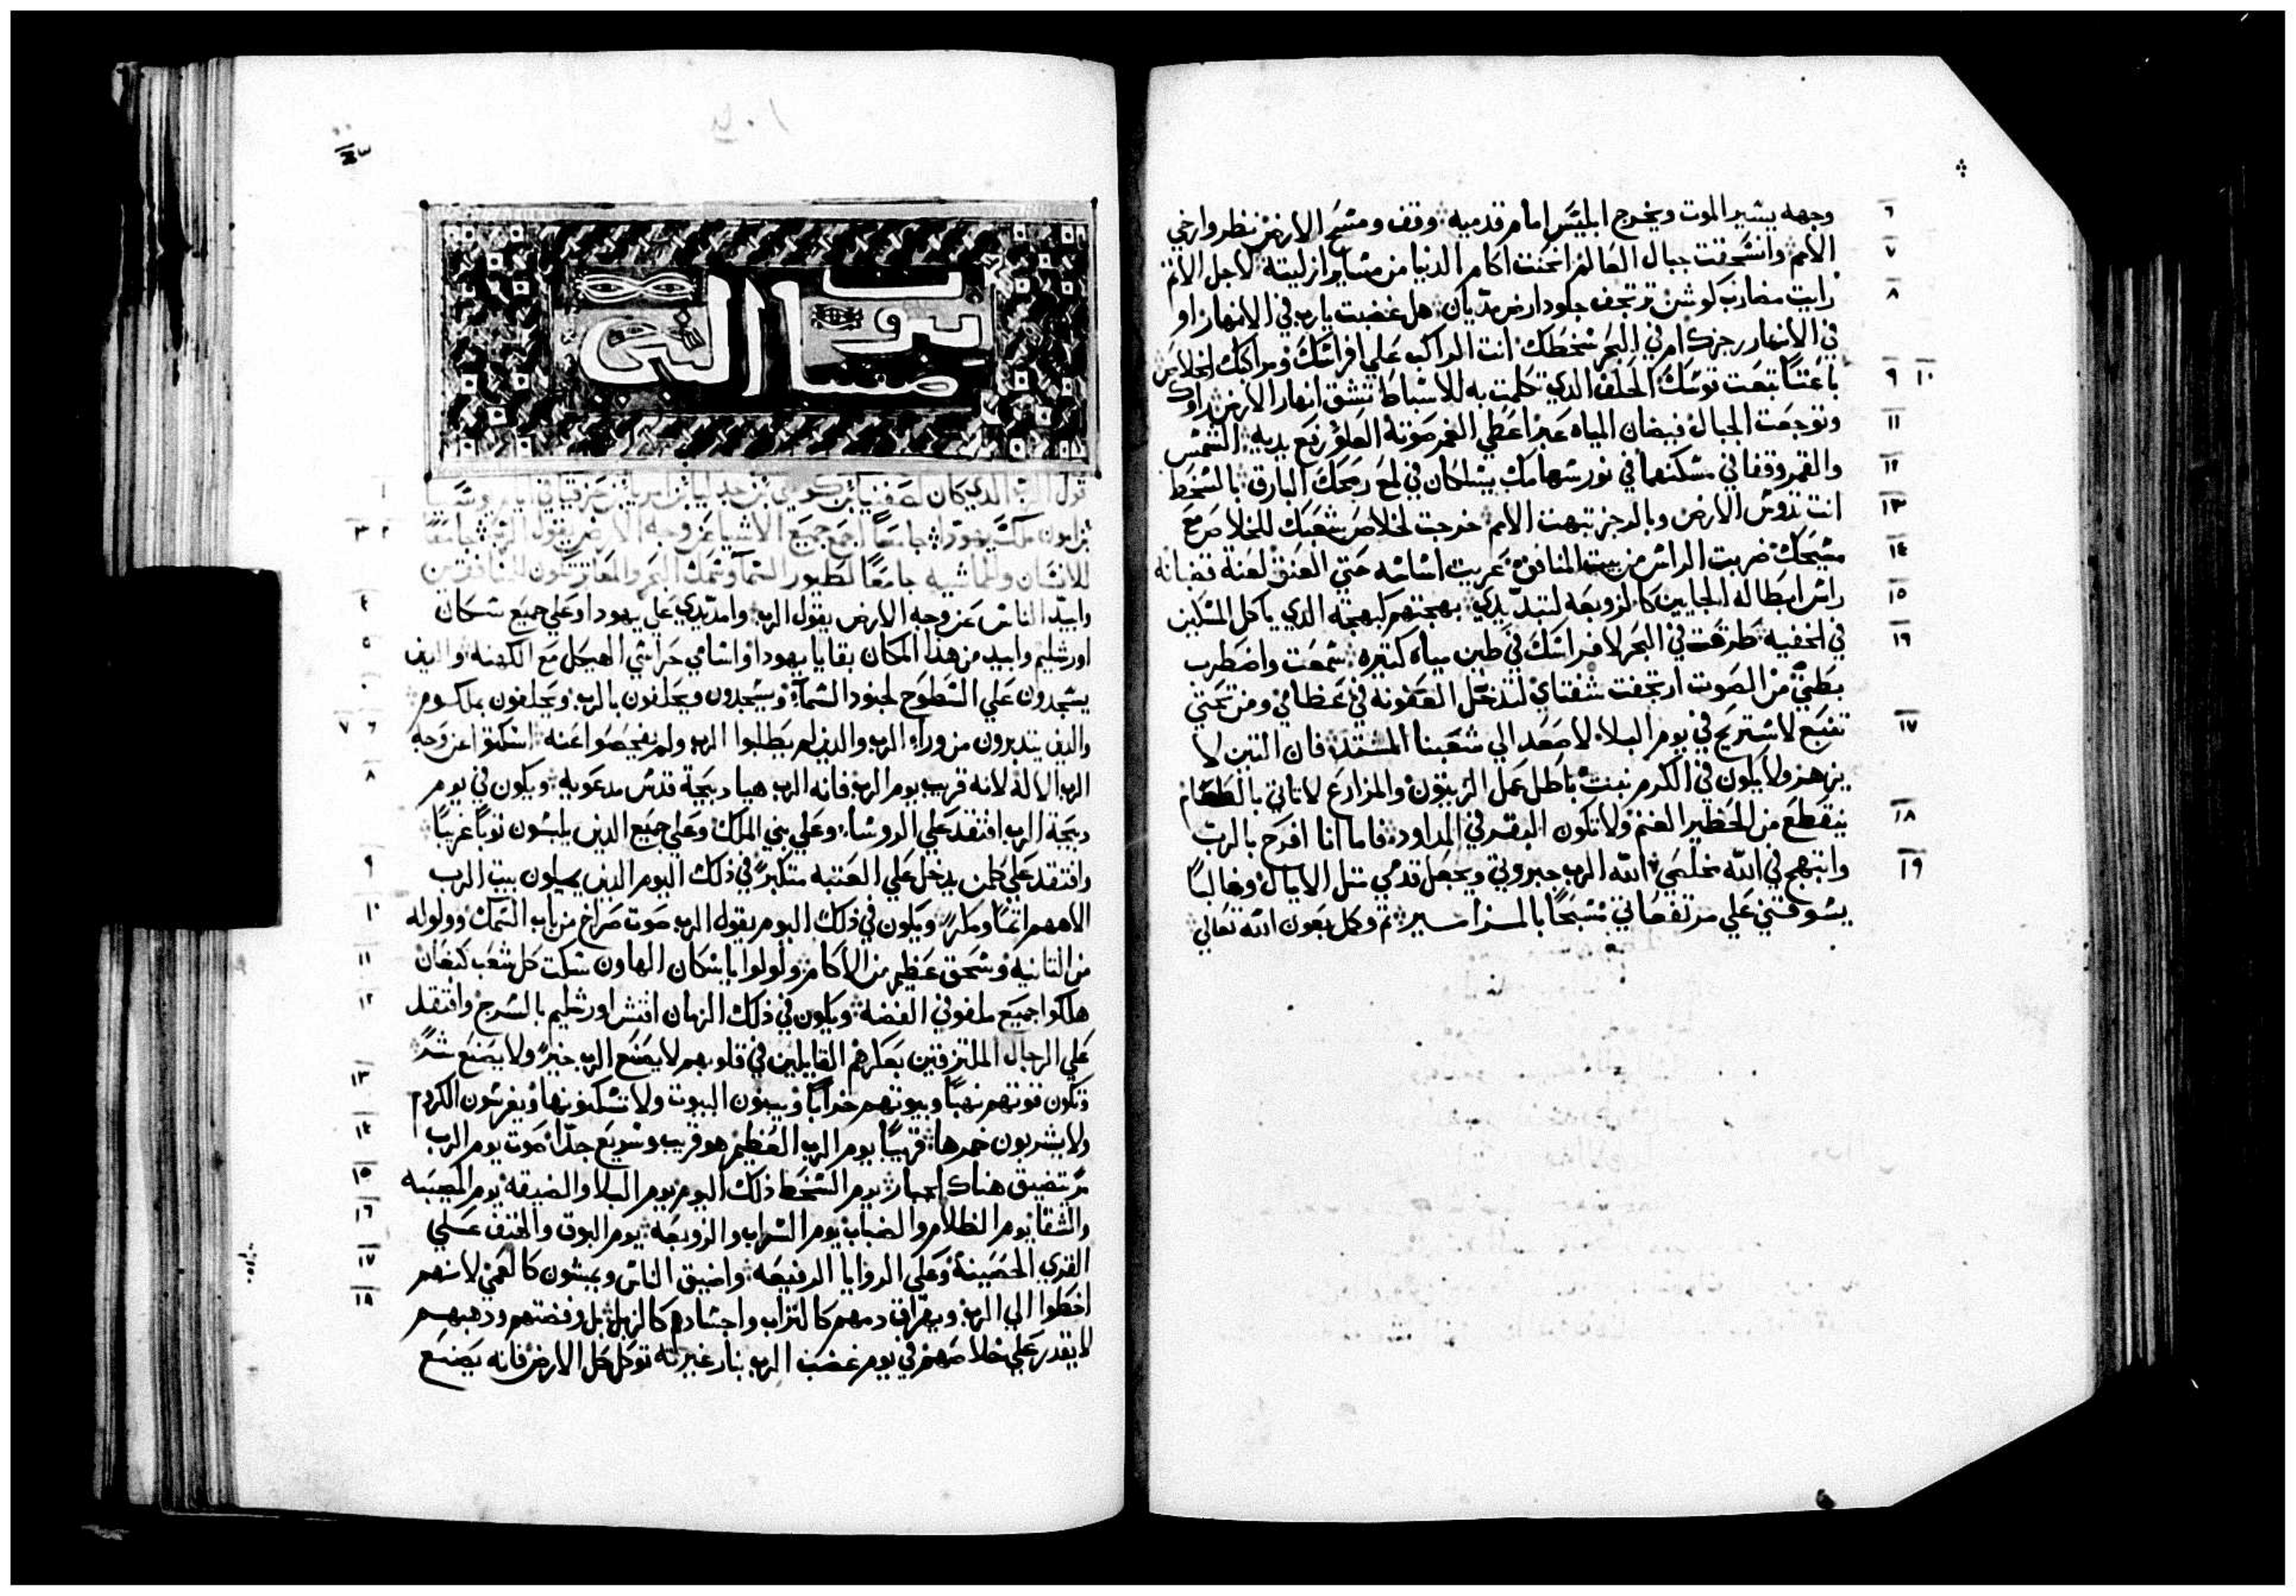 ٦ وجهه يسير الموت ويخرج ابليس امام قدميه وقف ومسح الارض نظر وارخي
٧ الامم وانسحقت جبال العالم انحنت اكام الدنيا من مسا وازليته لاجل الاثم
٨ رايت مضارب كوش ترتجف جلود ارض مديان هل غضبت يارب في الانهار او
في الانهار رجزك ام في البحر سخطك انت الراكب علي افراسك ومراكبك لخلاص
٩ ١٠ باعثا تبعث قوسك الحلف الذي تكلمت به للاسباط تشق انهار الارض راوك
١١ وتوجعت الجبال فيضان المياه عبر اعطي الغمر صوته العلو رفع يديه الشمس
١٢ والقمر وقفا في مسكنهما في نور سهامك يسلكان في لمع رمحك البارق بالسخط
١٣ انت تدوس الارض وبالرجز تبهت الامم خرجت لخلاص شعبك للخلاص مع
١٤ مسيحك ضربت الراس من بيت المنافق عريت اساسه حتي العنق لعنة قضبانه
١٥ راس ابطاله الجايين كالزوبعه لتبديدي بهجتهم كبهجة الدي ياكل المسكين
١٦ في الخفيه طرقت في البحر لافراسك في طين مياه كتيره سمعت واضطرب
بطني من الصوت ارتجفت شفتاي لتدخل العفونه في عظامي ومن تحتي
١٧ تنبع لاستريح في يوم البلاء لاصعد الي شعبنا المستد فان التين لا
يزهر ولا يكون في الكرم نبت باطل عمل الزيتون والمزارع لا تاتي بالطعام
١٨ ينقطع من الحظير الغنم ولا تكون البقر في المداود فاما انا افرح بالرب
١٩ وابتهج في الله مخلصي الله الرب جبروتي ويجعل قدمي متل الايايل وغالبا
يسوقني علي مرتفعاتي مسبحا بالمزامير تم وكمل بعون الله تعالي
نبوة
صفنيا النبي
١ قول الرب الدي كان لصفنيا بن كوشي بن جدليا بن امريا بن حزقيا في ايام يوشيا
٢ ٣ بن امون ملك يهودا جامعا اجمع جميع الاشيا عن وجه الارض يقول الرب جامعا
للانسان وللماشيه جامعا لطيور السما وسمك البحر والمعاتر تكون للمنافقين
٤ وابيد الناس عن وجه الارض يقول الرب وامد يدي علي يهودا وعلي جميع سكان
٥ اورشليم وابيد من هذا المكان بقايا يهودا واسامي حراسي الهيجل مع الكهنه والدين
يسجدون علي السطوح لجنود السماء ويسجدون ويحلفون بالرب ويحلفون بملكوم
٦ ٧ والدين يتدبرون من وراء الرب والدين لم يطلبوا الرب ولم يفحصوا عنه اسكتوا عن وجه
٨ الرب الاله لانه قريب يوم الرب فانه الرب هيا دبيحة قدس مدعويه ويكون في يوم
دبيحة الرب افتقد علي الروساء وعلي بني الملك وعلي جميع الدين يلبسون توبا غريبا
٩ وافتقد علي كلمن يدخل علي العتبه متكبر في ذلك اليوم الدين يملون بيت الرب
١٠ الاههم اتما ومكر ويكون في ذلك اليوم يقول الرب صوت صراخ من باب السمك وولوله
١١ من التانيه وسحق عظيم من الاكام ولولوا ياسكان الهاون سكت كل شعب كنعان
١٢ هلكوا جميع ملفوفي الفضه ويكون في ذلك الزمان افتش اورشليم بالسرج وافتقد
علي الرجال الملتزقين بعكرهم القايلين في قلوبهم لا يصنع الرب خير ولا يصنع شر
١٣ وتكون قوتهم نهبا وبيوتهم خرابا ويبنون البيوت ولا تسكنونها ويغرسون الكروم
١٤ ولا يشربون خمرها قريبا يوم الرب العظيم هو قريب وسريع جدا صوت يوم الرب
١٥ مر يتضيق هناك الجبار يوم السخط ذلك اليوم يوم البلا والضيقه يوم المصيبه
١٦ والشقا يوم الظلام والضباب يوم السراب والزوبعه يوم البوق والهتف علي
١٧ القري الحصينة وعلي الروايا الرفيعه واضيق الناس ويمشون كالعمي لانهم
١٨ اخطوا الي الرب ويهراق دمهم كالتراب واجسادهم كالزبل بل وفضتهم ودهبهم
لا يقدر علي خلاصهم في يوم غضب الرب بنار غيرته توكل كل الارض فانه يصنع